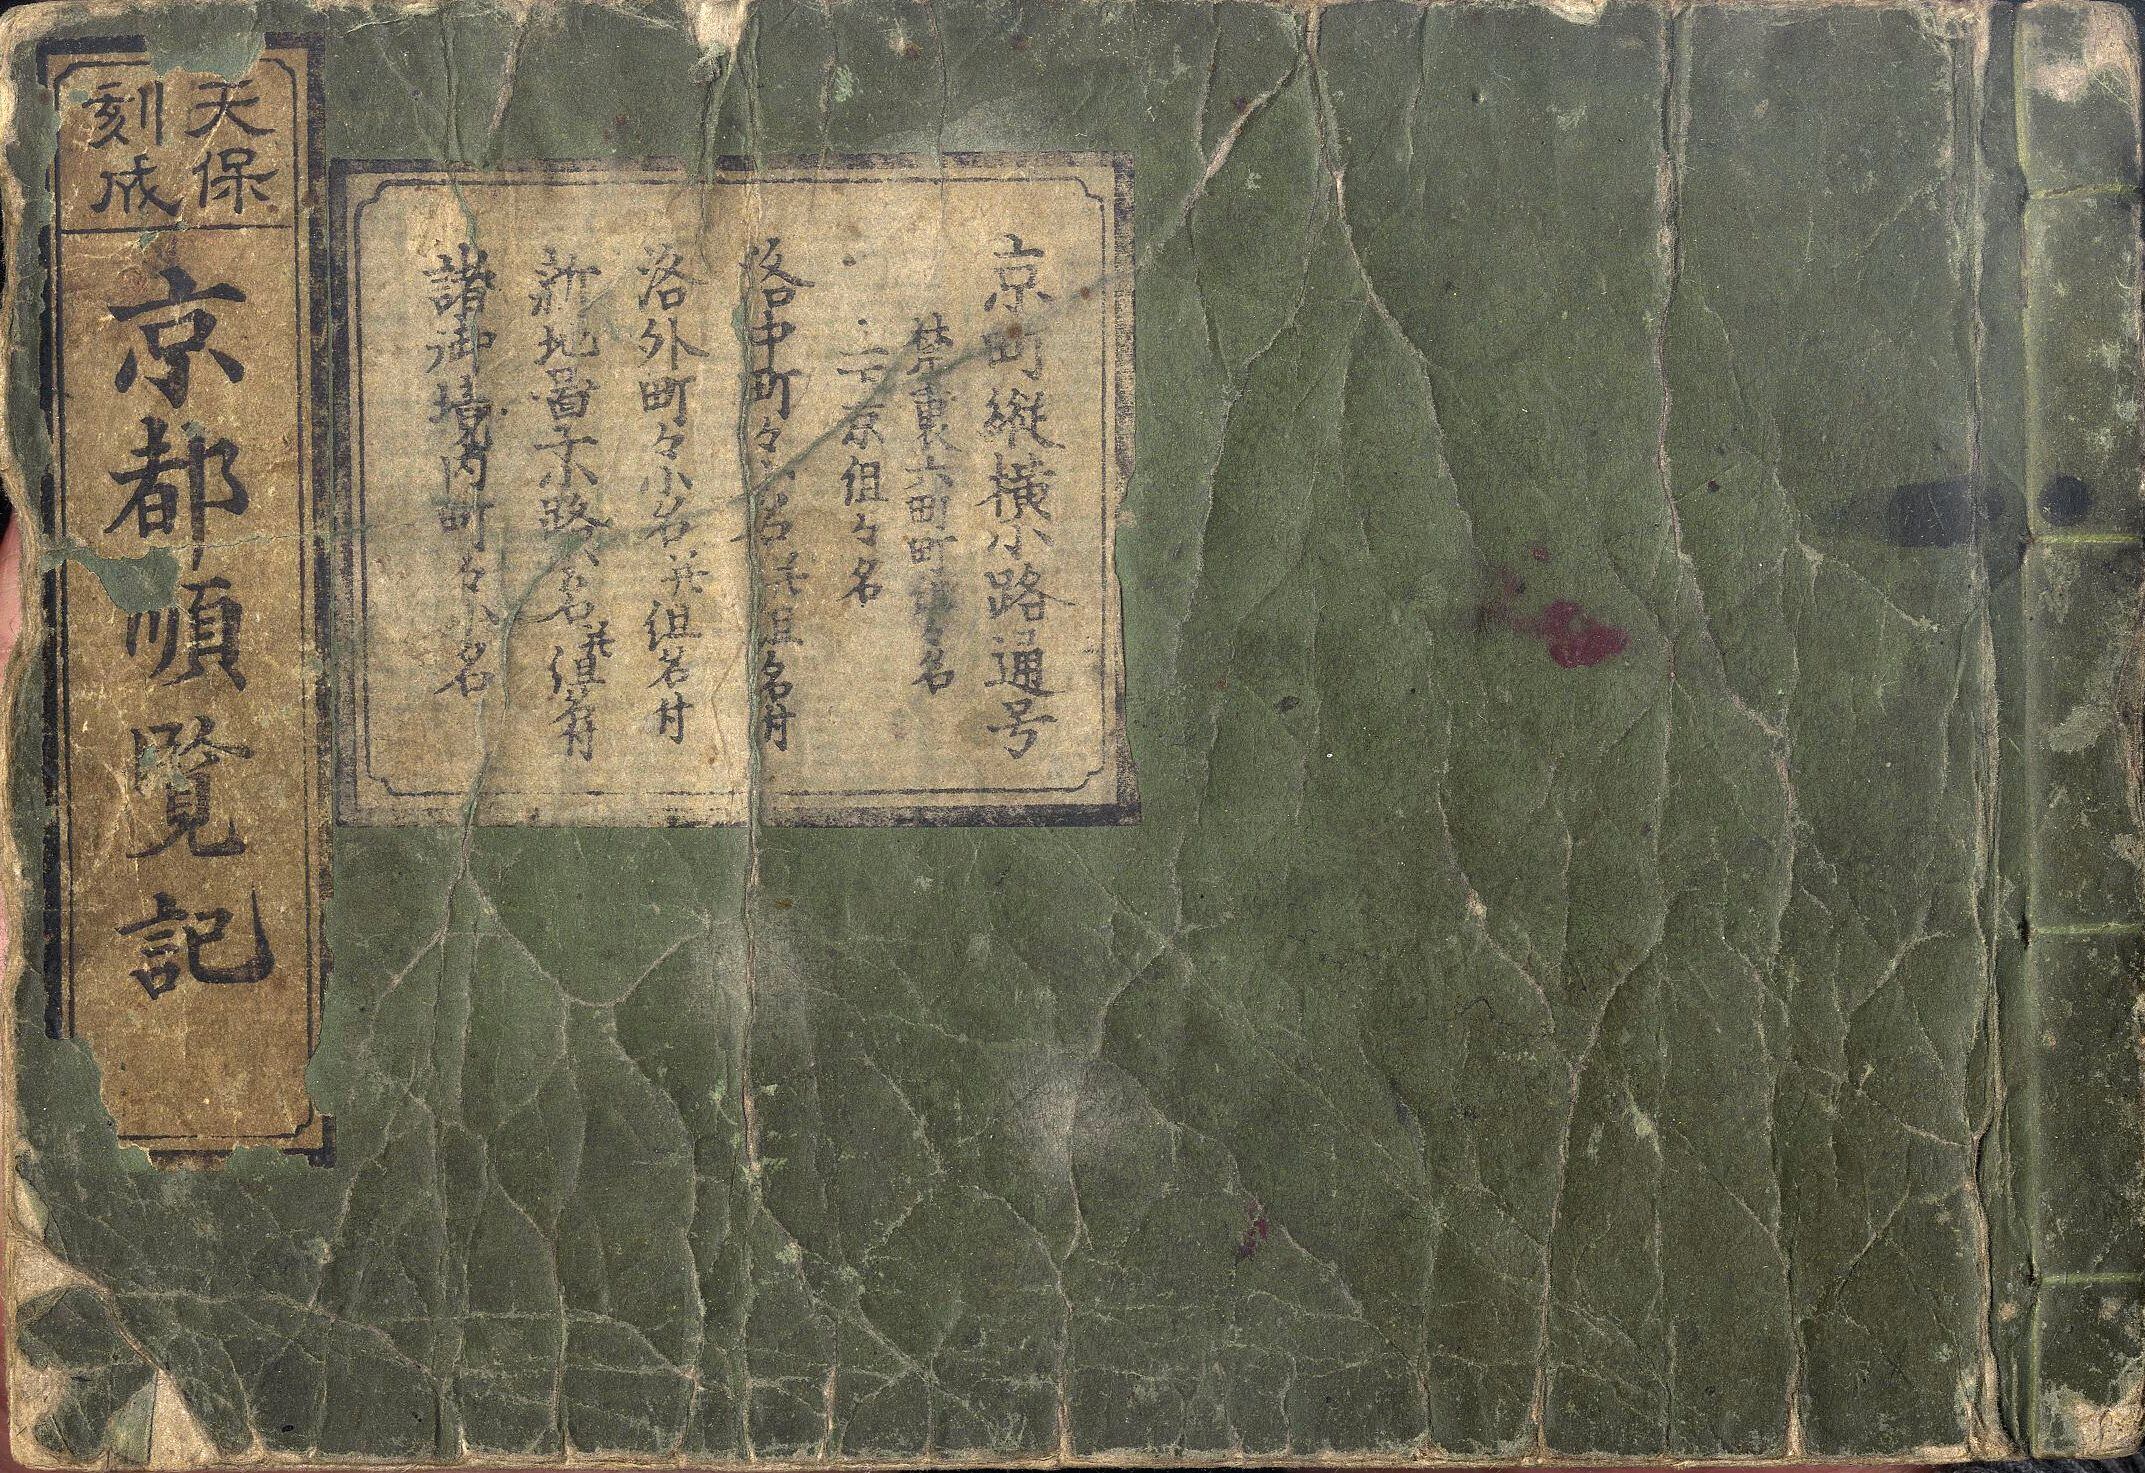 天保
刻成
京都順覧記
京町縦横小路通号
禁裏六町町々名
京組々名
洛中町々小名并組名付
洛外町々小名并組名付
新地啚子小路々名并組名付
諸御境内町々小名